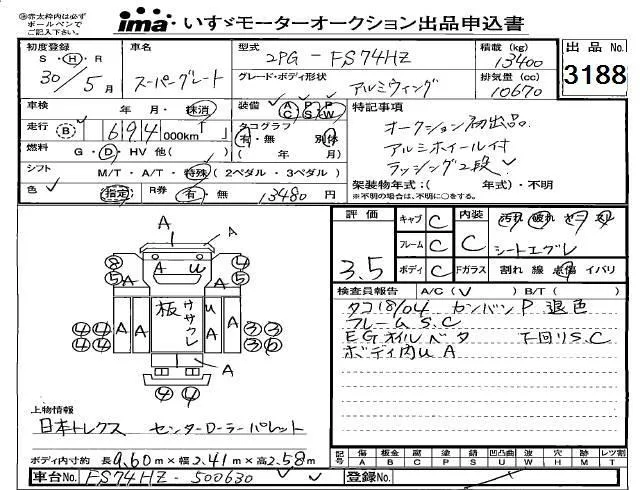 ※赤太枠内は必ず
ボールペンで
ご記入下さい。
ima いすゞモーターオークション出品申込書
初度登録 S・H・R 30年 5月
車名 スーパーグレート
型式 2PG-FS74HZ
積載(kg) 13400
出品No. 3188
グレード・ボディ形状 アルミウィング
排気量(cc) 10670
車検 年 月・抹消
装備 AC PS PW
特記事項
走行 B 694 000km
タコグラフ 有・無 別体 ( 年 月)
オークション初出品
アルミホイール付
ラッシング2段
燃料 G・D・HV 他( )
シフト M/T・A/T・特殊(2ペダル・3ペダル)
架装物年式:( 年式)・不明
※不明の場合は、不明に○をする。
色 指定 R券 有・無 13480円
評価 3.5
キャブ C 内装 C
フレーム C シートエグレ
ボディ C Fガラス 割れ 線 点傷 イバリ
検査員報告 A/C( ) B/T( )
タコ18/04 センバンP退色
フレームS.C
EGオイルベタ 下回りS.C
ボディ内UA
A A
8 5 A U 4 5
4 4 4 4 A A 板 ササクレ U A A 3 3 3 6
A A
4 4
上物情報
日本トレクス センターローラーパレット
ボディ内寸約 長9.60m×幅2.41m×高2.58m
記号 傷A 板金B 腐C 塗P 錆S 凹凸U 波W 穴H 跡M レツ割T
車台No. FS74HZ-500630
登録No.